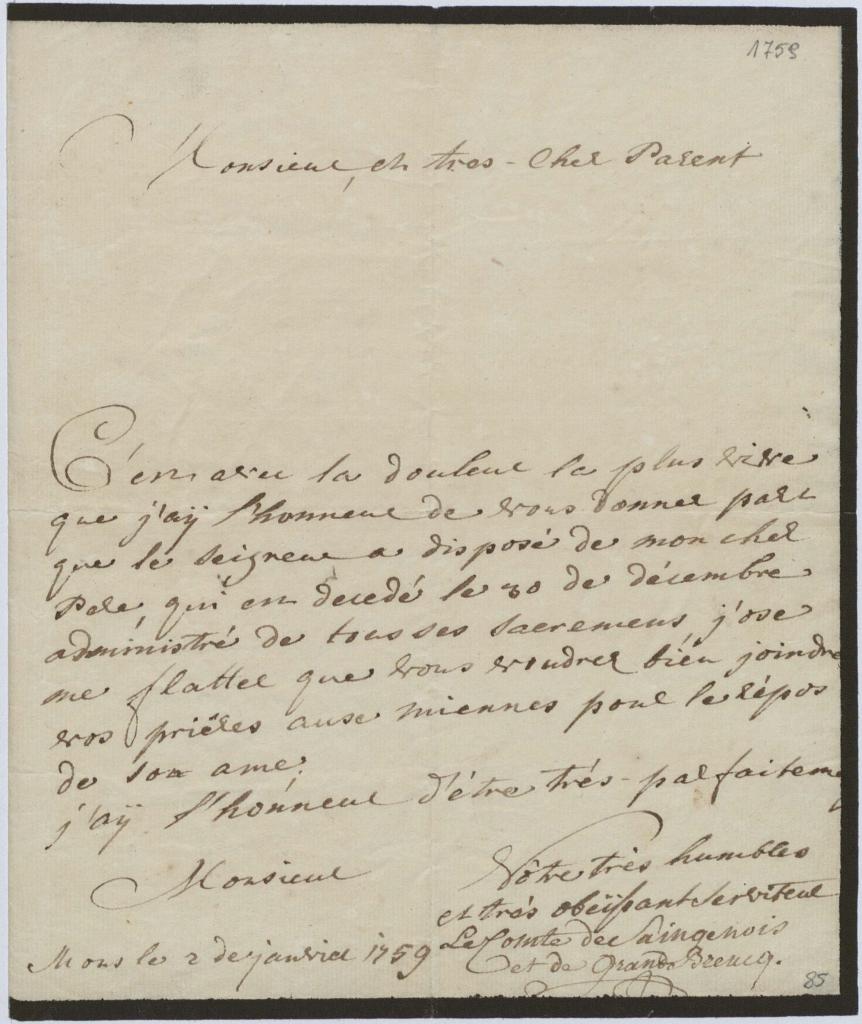 1759
Monsieur, et tres-Cher Parent
C'est avec la douleur la plus vive
que j'aÿ l'honneur de vous donner part
que le seigneur a disposé de mon cher
Pere, qui est decedé le 30 de décembre
administré de tous ses sacremens, j'ose
me flatter que vous voudrez bién joindre
vos priéres aux miennes pour le répos
de son ame.
j'aÿ l'honneur d'étre trés-parfaitement
Monsieur
Vôtre trés humbles
et trés obeïssant serviteur
Le Comte de Saingenois
et de Grand Breucq.
Mons le 2 de janvier 1759
85